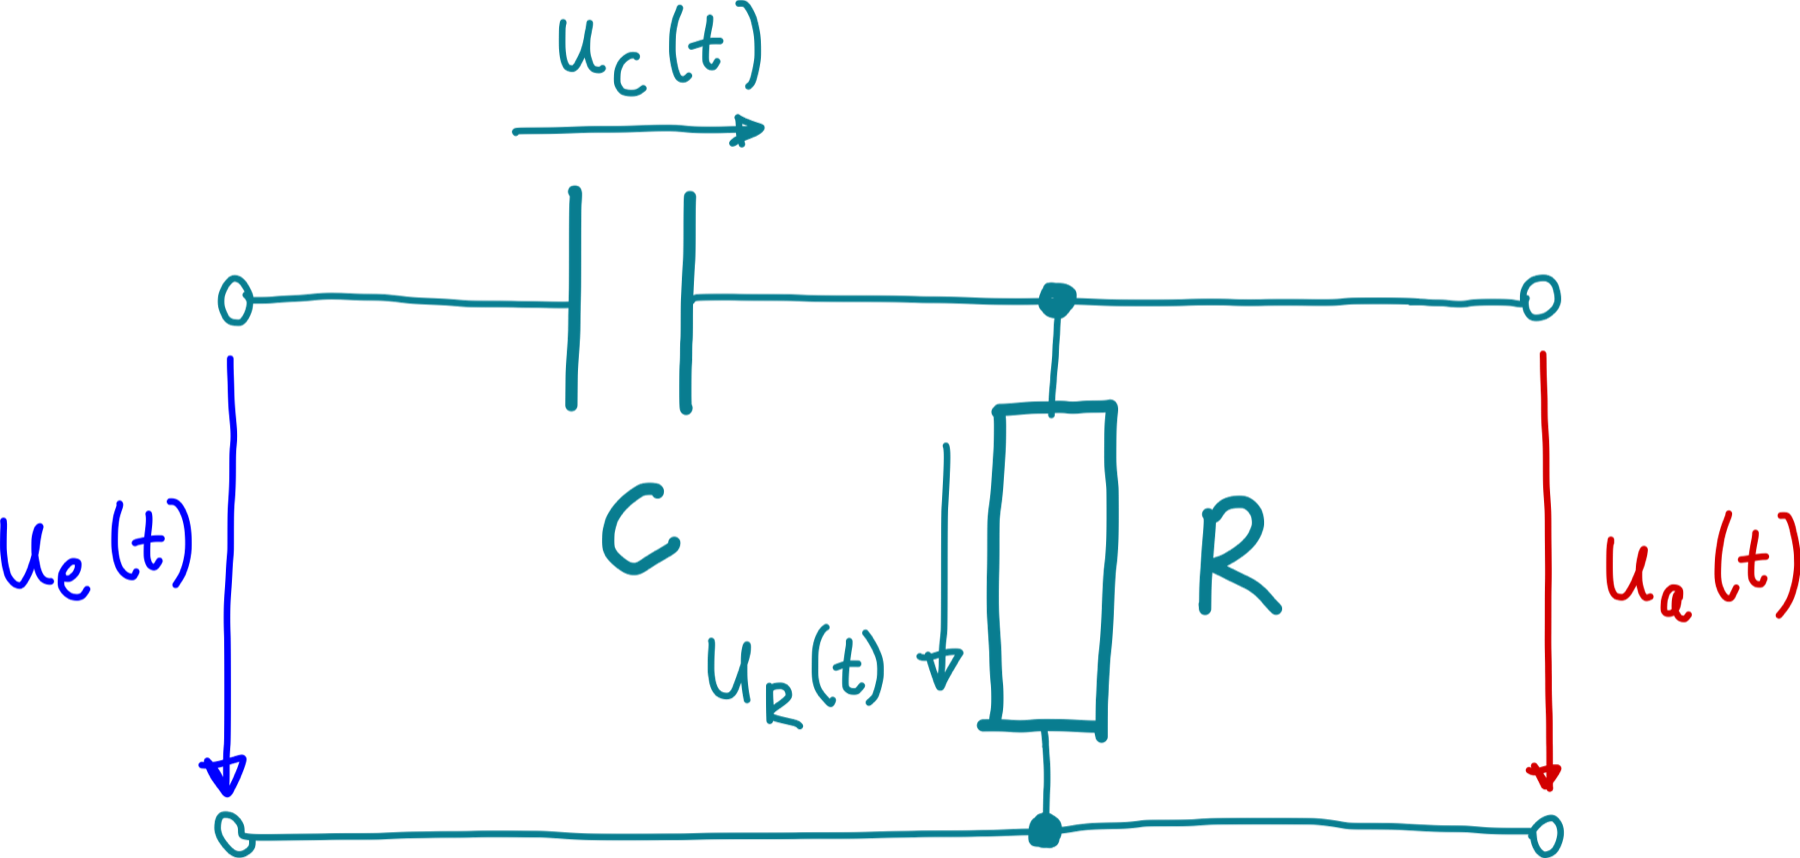 u_C(t)
u_e(t)
C
R
u_a(t)
u_R(t)